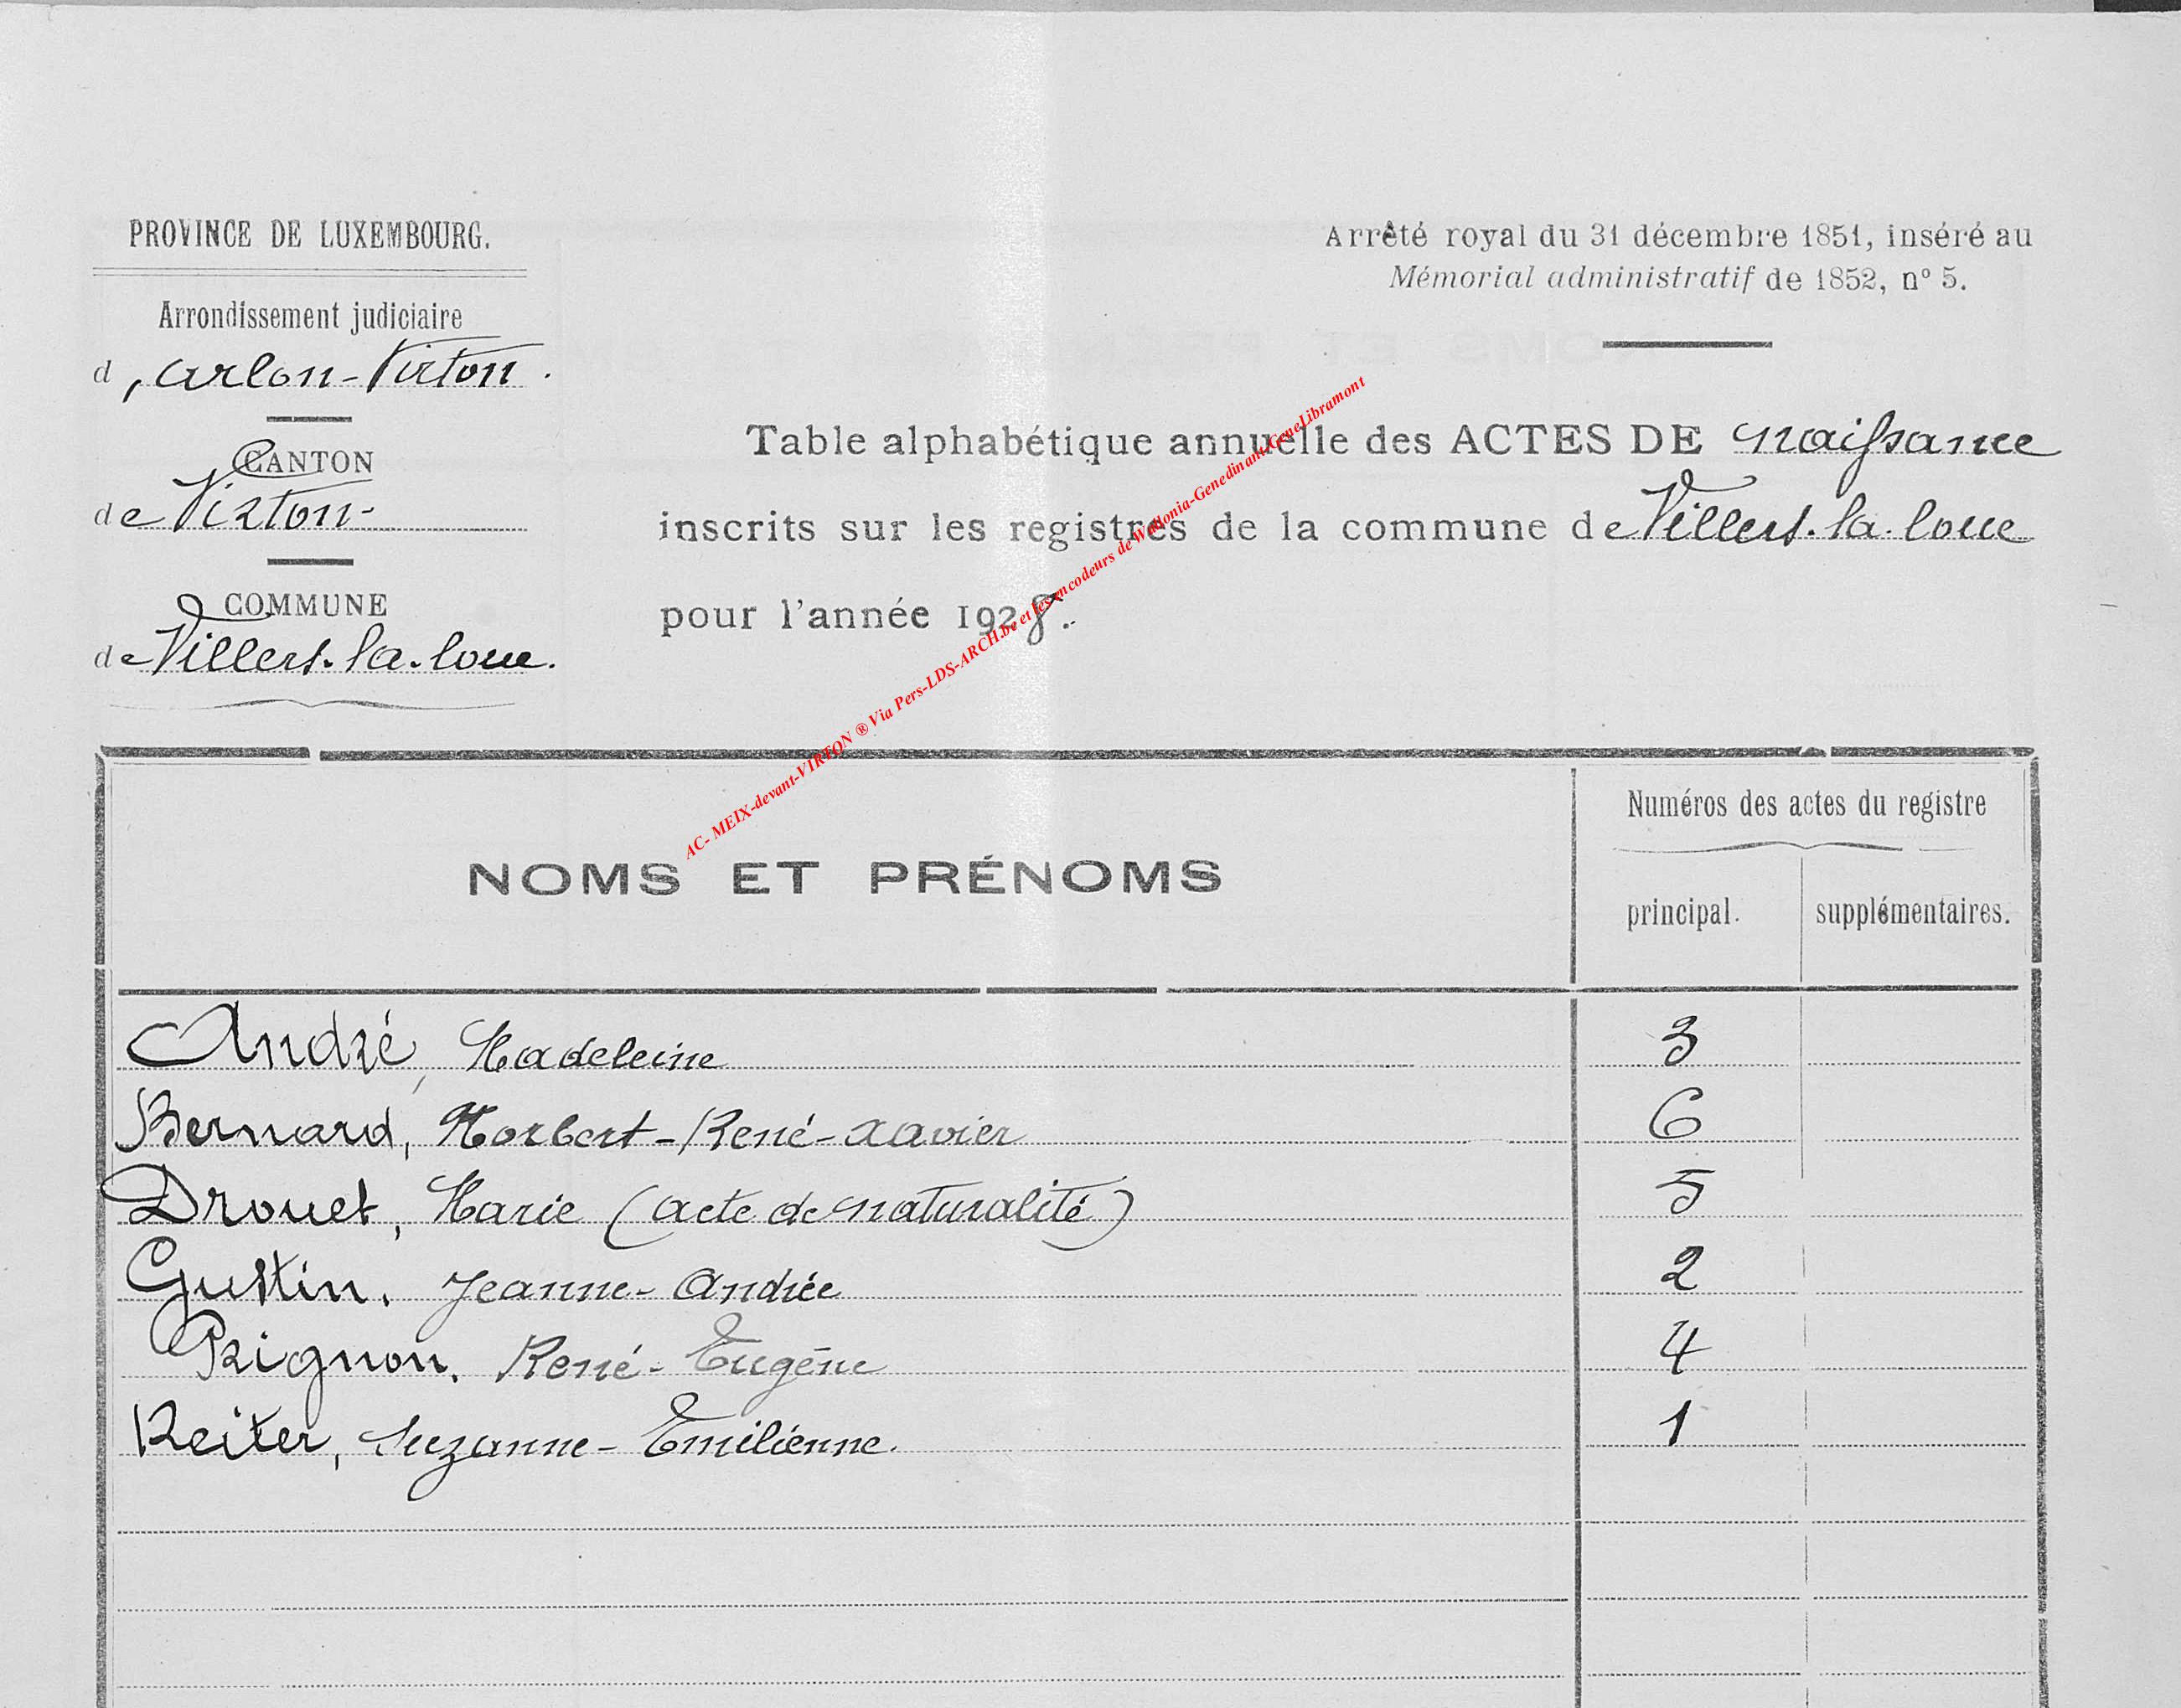 PROVINCE DE LUXEMBOURG.
Arrondissement judiciaire
d'Arlon-Virton.
CANTON
de Virton-
COMMUNE
de Villers-la-loue.
Arrêté royal du 31 décembre 1851, inséré au
Mémorial administratif de 1852, n° 5.
Table alphabétique annuelle des ACTES DE naissance
inscrits sur les registres de la commune de Villers-la-loue
pour l'année 1928.
AC- MEIX-devant-VIRTON ® Via Pers-LDS-ARCH.be et les encodeurs de Wallonia-Genedinant-GeneLibramont
NOMS ET PRÉNOMS
Numéros des actes du registre
principal. supplémentaires.
André, Madeleine 3
Bernard, Norbert-René-Xavier 6
Drouet, Marie (acte de naturalité) 5
Gustin. Jeanne-Andrée 2
Prignon. René-Eugène 4
Reiter, Suzanne-Emilienne. 1